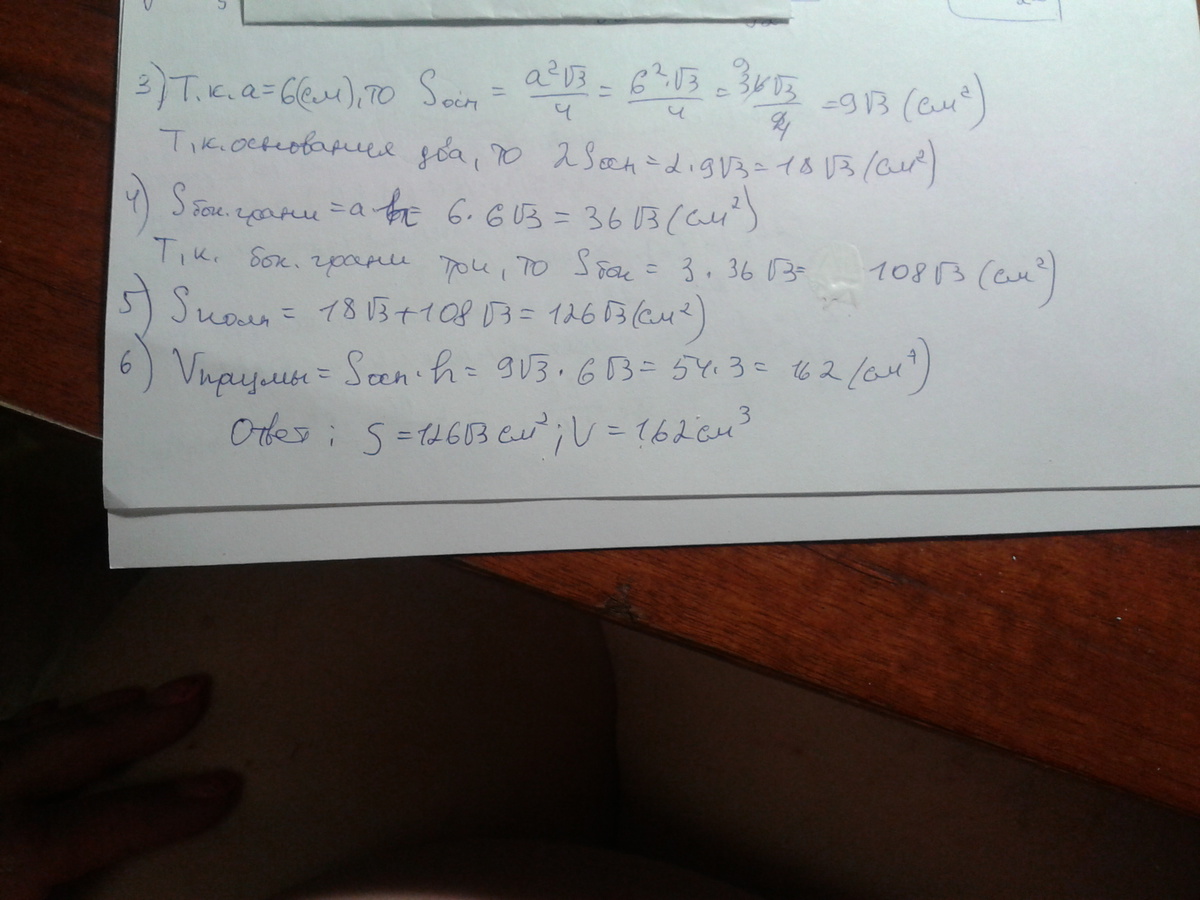 3) Т.к. a=6(см), то Sосн = a²√3/4 = 6²·√3/4 = 36√3/4 = 9√3 (см²)
Т.к. основания два, то 2Sосн = 2·9√3 = 18√3 (см²)
4) Sбок.грани = a·h = 6·6√3 = 36√3 (см²)
Т.к. бок. грани три, то Sбок = 3·36√3 = 108√3 (см²)
5) Sполн = 18√3+108√3 = 126√3 (см²)
6) Vпризмы = Sосн·h = 9√3·6√3 = 54·3 = 162 (см³)
Ответ: S = 126√3 см²; V = 162 см³